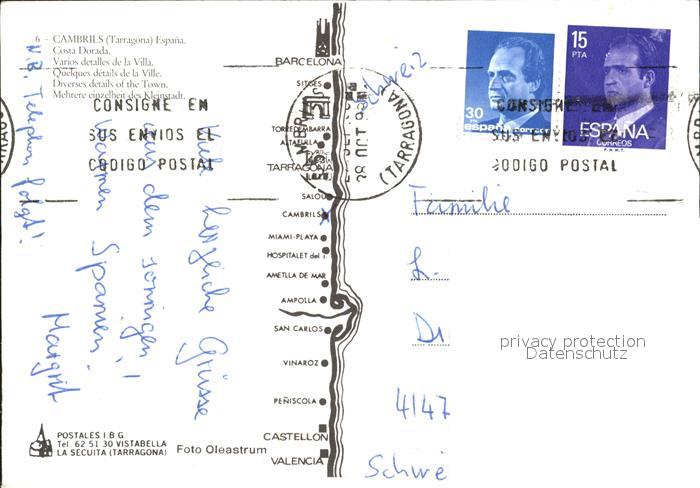 6 - CAMBRILS (Tarragona) España.
Costa Dorada.
Varios detalles de la Villa.
Quelques détails de la Ville.
Diverses details of the Town.
Mehrere einzelheit des Kleinstadt.
CONSIGNE EN
SUS ENVIOS EL
CODIGO POSTAL
N.B. Telephon folgt!
Viele herzliche Grüsse
aus dem sonnigen,
warmen Spanien!
Margrit
BARCELONA
SITGES
TORREDEMBARRA
ALTAFULLA
TARRAGONA
SALOU
CAMBRILS
MIAMI-PLAYA
HOSPITALET del I.
AMETLLA DE MAR
AMPOLLA
SAN CARLOS
VINAROZ
PEÑISCOLA
CASTELLON
VALENCIA
(TARRAGONA)
28 OCT
30
españa correos
15
PTA
ESPAÑA
CORREOS
F.N.M.T.
CONSIGNE EN
SUS ENVIOS EL
CODIGO POSTAL
Schweiz
Familie
L.
Di
4147
Schwe
privacy protection
Datenschutz
POSTALES I.B G.
Tel. 62 51 30 VISTABELLA
LA SECUITA (TARRAGONA)
Foto Oleastrum